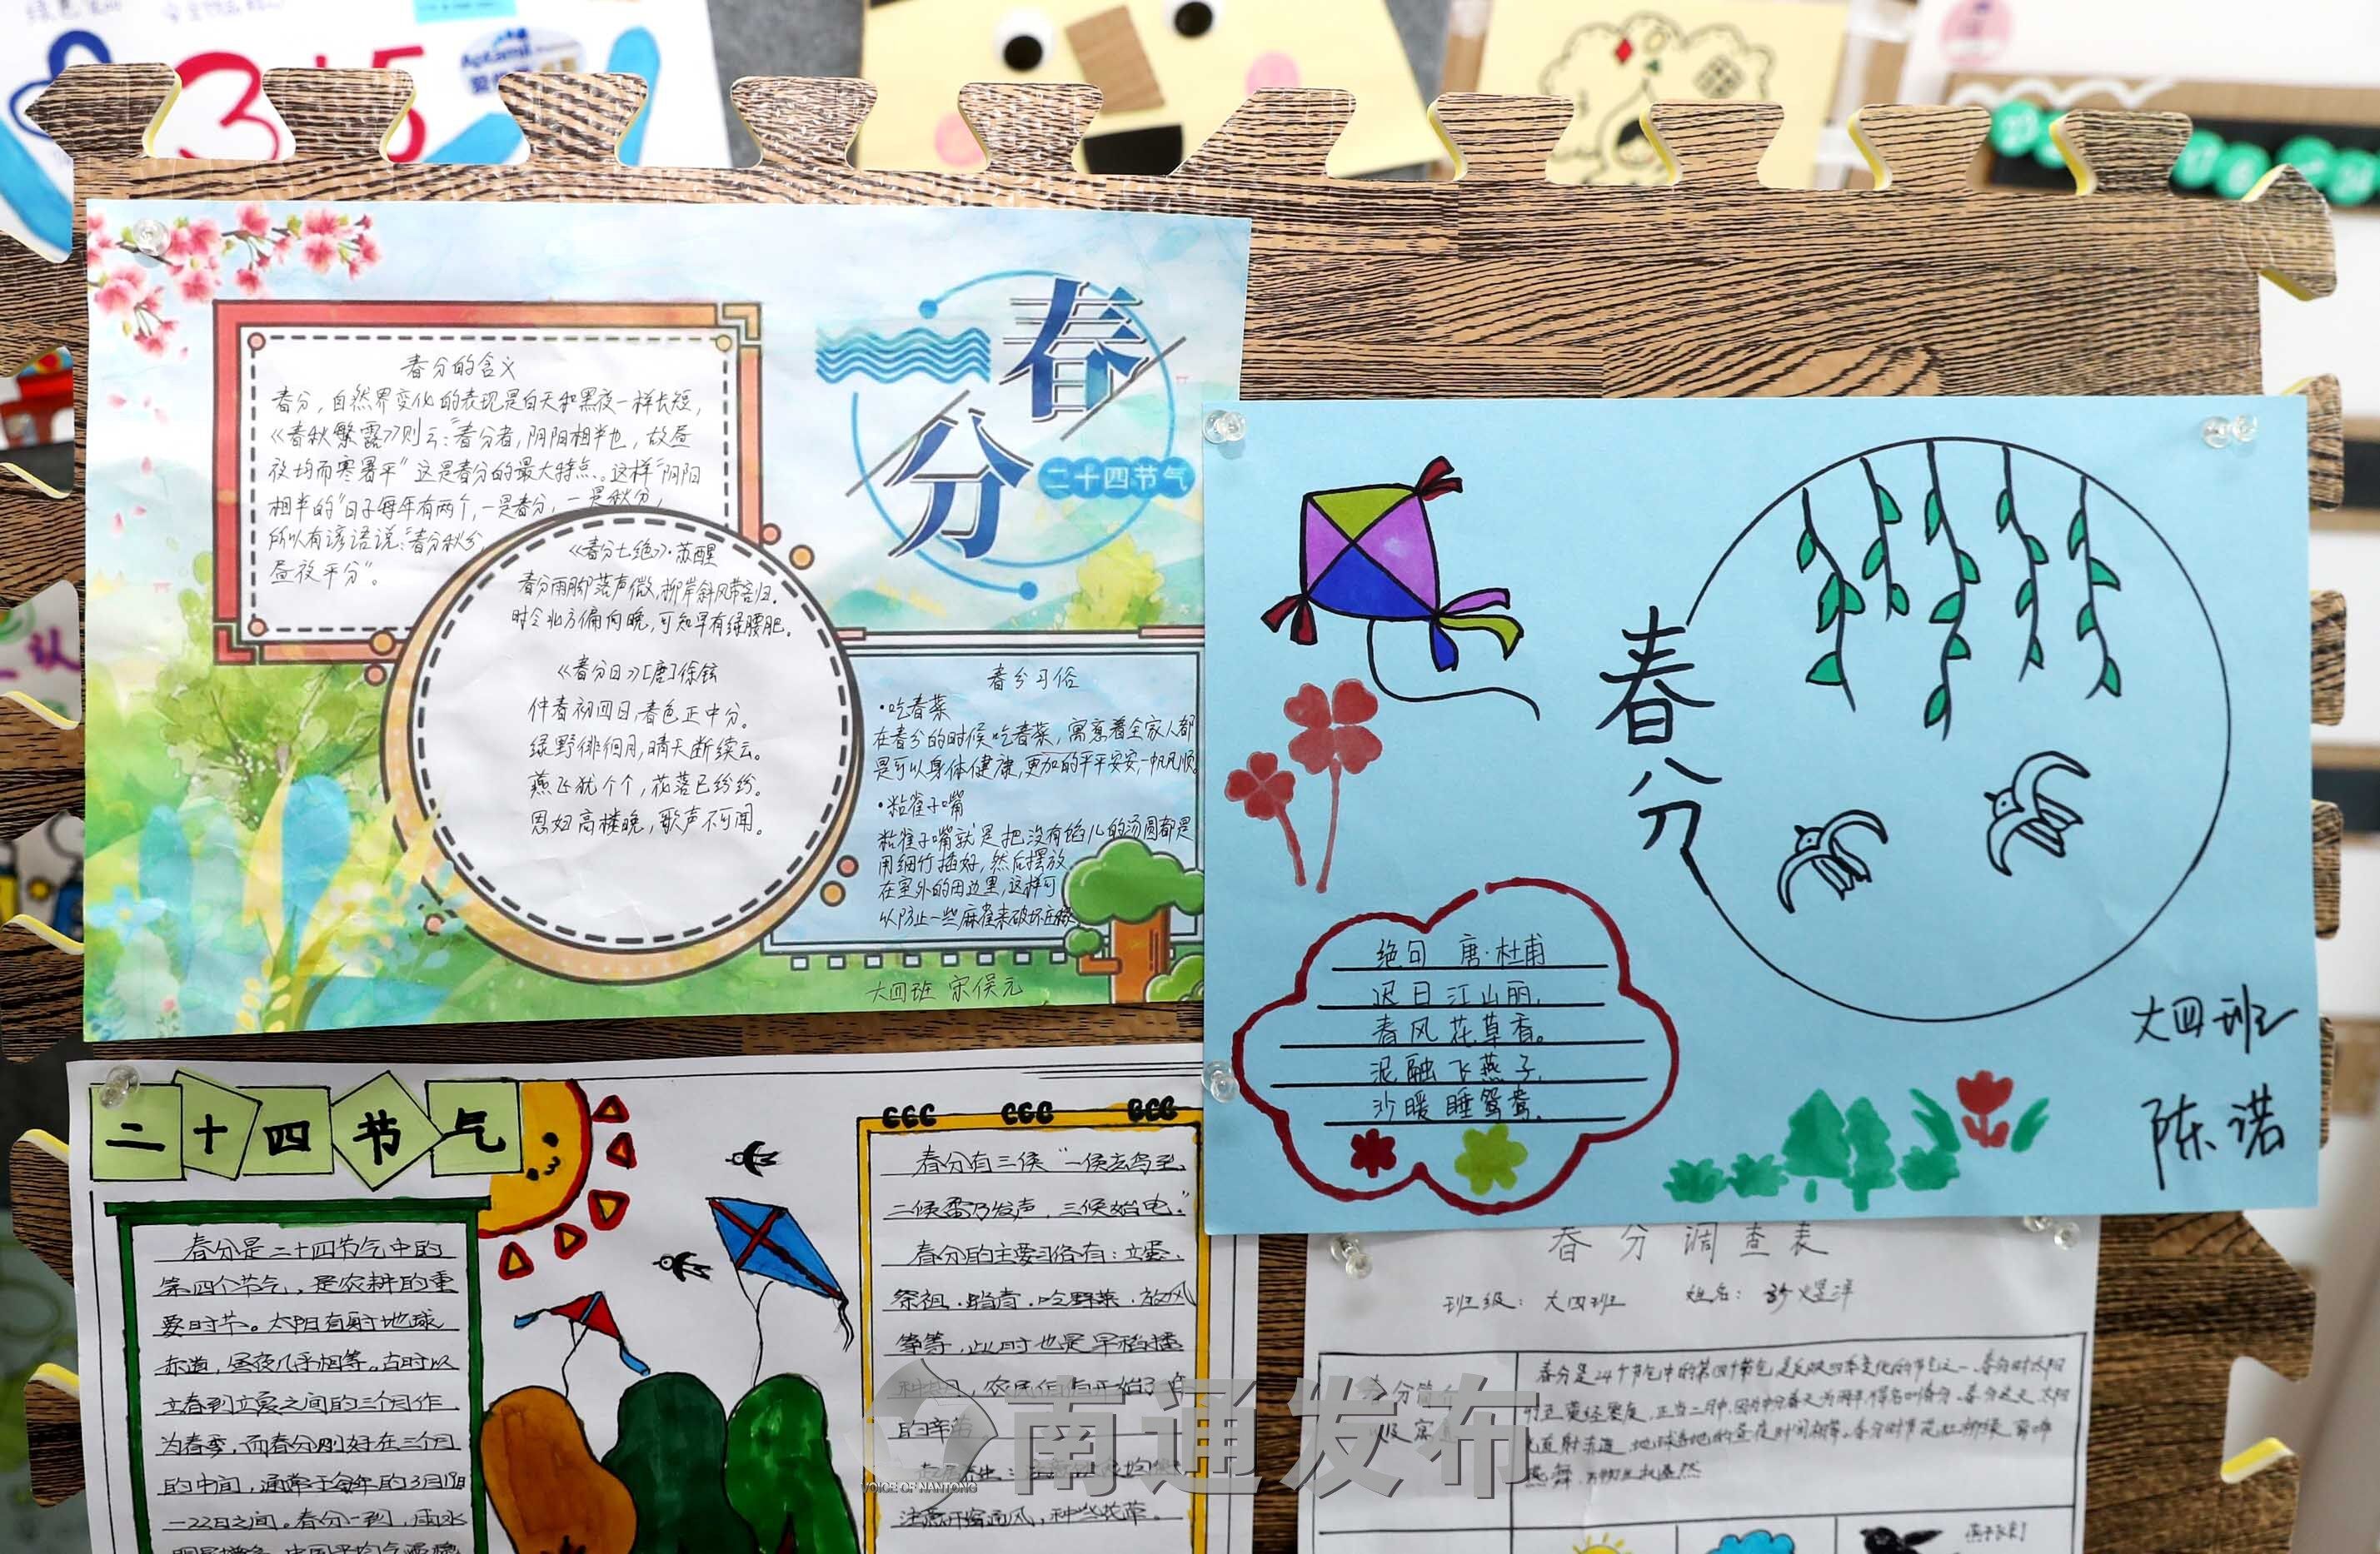 3+5
春分
二十四节气
春分的含义
春分，自然界变化的表现是白天和黑夜一样长短，
《春秋繁露》则云："春分者，阴阳相半也，故昼
夜均而寒暑平"这是春分的最大特点。这样"阴阳
相半的"日子每年有两个，一是春分，一是秋分，
所以有谚语说："春分秋分，
昼夜平分"。
《春分七绝》·苏醒
春分雨脚落声微，柳岸斜风带客归。
时令北方偏向晚，可知早有绿腰肥。
《春分日》[唐]徐铉
仲春初四日，春色正中分。
绿野徘徊月，晴天断续云。
燕飞犹个个，花落已纷纷。
思妇高楼晚，歌声不可闻。
春分习俗
·吃春菜
在春分的时候吃春菜，寓意着全家人都
是可以身体健康，更加的平平安安，一帆风顺
·粘雀子嘴
粘雀子嘴就是把没有馅儿的汤圆都是
用细竹插好，然后摆放
在室外的田边里，这样可
以防止一些麻雀来破坏庄稼
大四班 宋俣元
春分
绝句 唐·杜甫
迟日江山丽，
春风花草香。
泥融飞燕子，
沙暖睡鸳鸯。
大四班
陈诺
二十四节气
春分是二十四节气中的
第四个节气，是农耕的重
要时节。太阳直射地球
赤道，昼夜几乎相等。古时以
立春到立夏之间的三个月作
为春季，而春分刚好在三个月
的中间，通常于每年的3月19日
—22日之间。春分一到，雨水
春分有三候"一候玄鸟至，
二候雷乃发声，三候始电。"
春分的主要习俗有：立蛋、
祭祖、踏青、吃野菜、放风
筝等，此时也是早稻播
种期，农民伯伯开始了
的辛苦。
注意开窗通风，种些花草。
春分调查表
班级：大四班 姓名：
春分简介
以及寓意
春分是24个节气中的第四个节气 是反映四季变化的节气之一。春分时太阳
燕舞，
南通发布
VOICE OF NANTONG